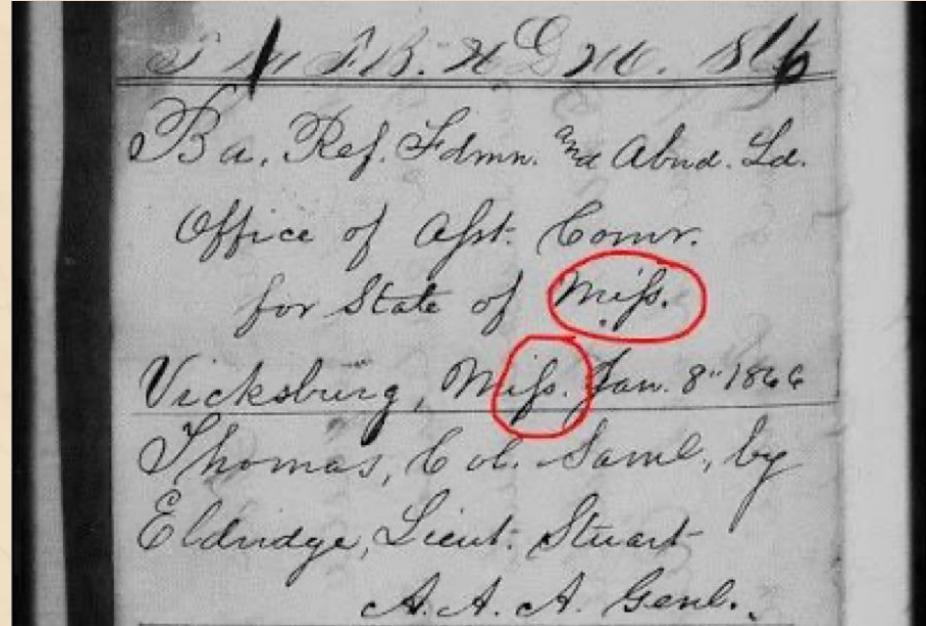 Ba. Ref. Fdmn. and Abnd. Ld.
Office of Aſst. Comr.
for State of Miſs.
Vicksburg, Miſs. Jan. 8" 1866
Thomas, Col. Saml., by
Eldridge, Lieut. Stuart
A. A. A. Genl.